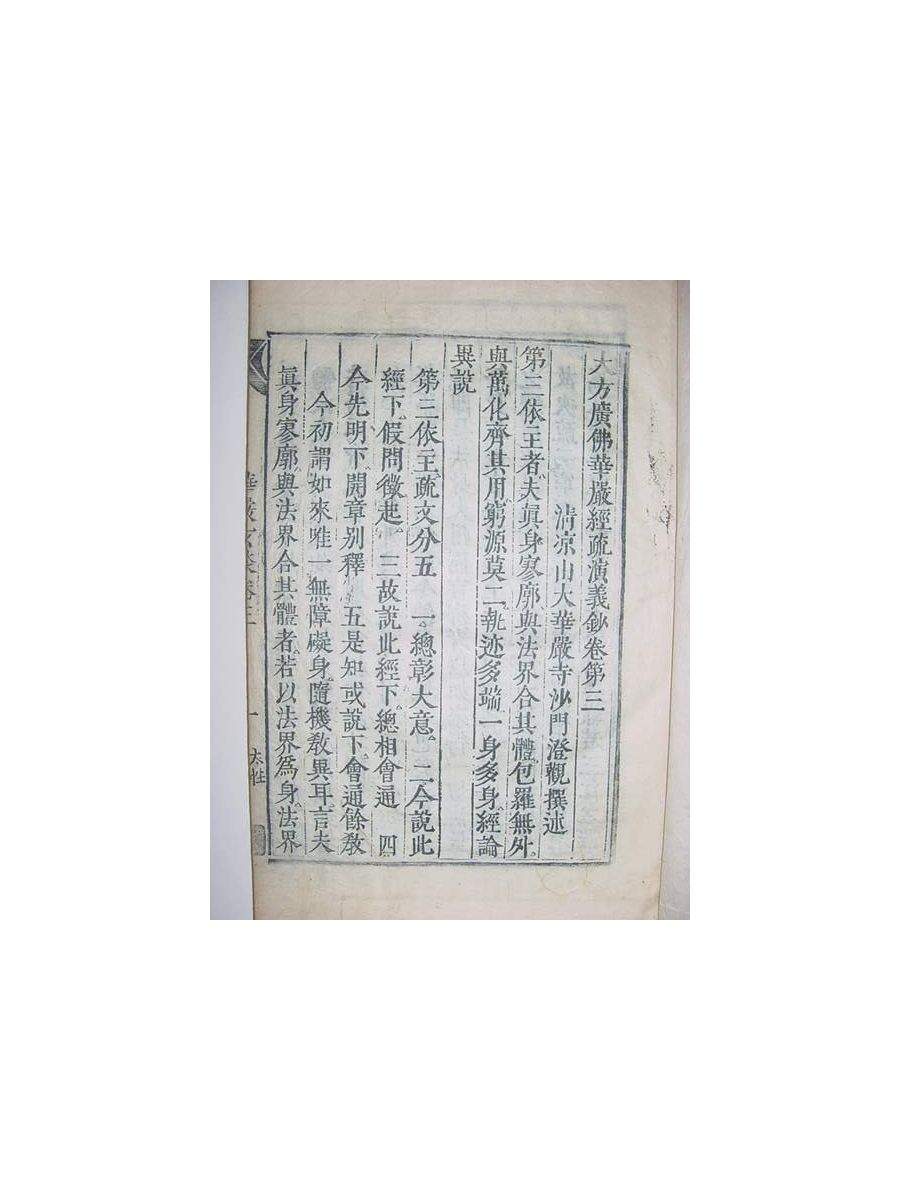 大方廣佛華嚴經疏演義鈔卷第三
清凉山大華嚴寺沙門澄觀撰述
第三依主者夫眞身寥廓與法界合其體包羅無外
與萬化齊其用窮源莫二執迹多端一身多身經論
異說
第三依主疏文分五 一總彰大意二今說此
經下假問徵起 三故說此經下總相會通 四
今先明下開章别釋 五是知或說下會通餘教
今初謂如來唯一無障礙身隨機教異耳言夫
眞身寥廓與法界合其體者若以法界爲身法界